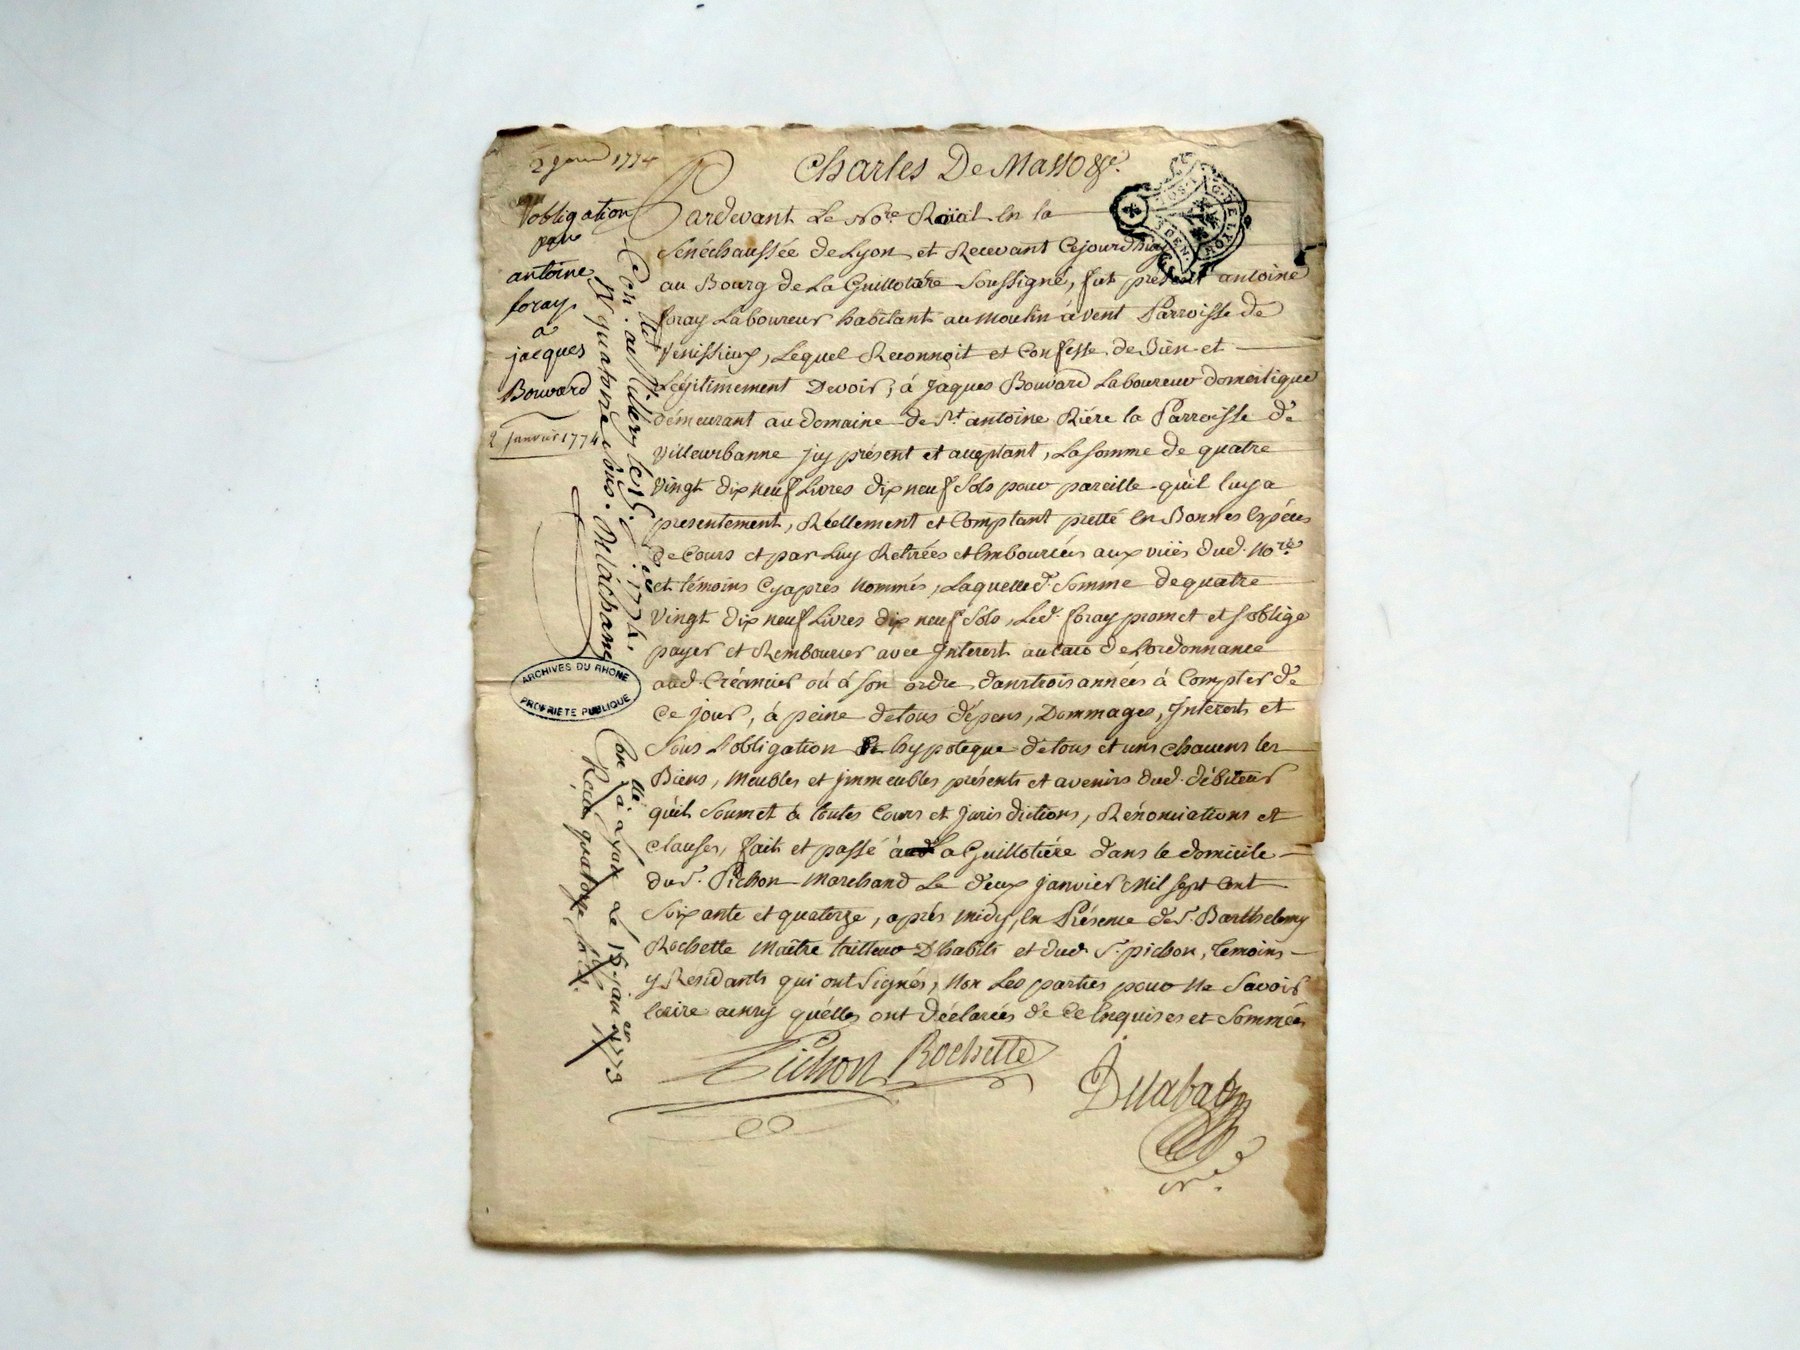 2 janvier 1774
Charles De Masso &c.
obligation
par
antoine
foray
a
jacques
Bouvard
2 janvier 1774
Pardevant Le No.re Roïal En la
Sénéchaussée de Lyon et Recevant Cejourdhuy
au Bourg de La Guillotiére Soussigné, fut présent antoine
foray Laboureur habitant au moulin à vent Parroisse de
Venissieux, Lequel Reconnoit et Confesse de Bien et
Légitimement Devoir, à Jaques Bouvard Laboureur domestique
démeurant au domaine de St. antoine Riére la Parroisse de
Villeurbanne jcy présent et acceptant, La somme de quatre
Vingt dix neuf Livres dix neuf Sols pour pareille qu'il luy a
presentement, Réellement et Comptant pretté En Bonnes Espéces
de Cours et par Luy Retirées et Emboursées aux vües dud. No.re
et témoins Cyaprés Nommés, Laquelle d. Somme de quatre
Vingt dix neuf Livres dix neuf Sols, Led. foray promet et s'oblige
payer et Rembourser avec Interest au taux de Lordonnance
aud. Créancier où à son ordre dans trois années à Compter de
Ce jour, à peine de tous dépens, Dommages, Interests et
Sous L'obligation & hypoteque de tous et uns chacuns ses
Biens, Meubles et jmmeubles présents et avenirs dud. débiteur
qu'il Soumet à toutes Cours et Jurisdictions, Rénonciations et
Clauses, fait et passé à La Guillotiére dans le domicile
du s.r Pichon Marchand Le deux Janvier Mil sept Cent
Soixante et quatorze, aprés midy, En Présence de s.r Barthelemy
Rochette Maître tailleur D'habits et dud. s.r pichon, temoins
y Residants qui ont Signés, Non Les parties pour Ne Savoir
Ecrire ainsy quélles ont déclarées de Ce Enquises et Sommées
Pichon Rochette
Con.llé a
le 15. 1774.
R quatorze sous.
ARCHIVES DU RHONE
PROPRIETE PUBLIQUE
Con.llé à Lyon Le 15 janv.er 1773
Reçu quatorze sols.